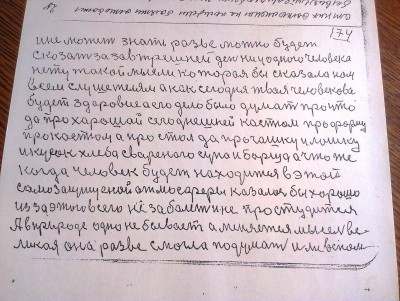 174
и не может знати разве можно будет
сказат за завтрешней ден ни уодного человека
нету такой мысли которая бы сказала нам
всем слушателям а как сегодня твая человекова
будет здоровие а его дело было думат про што
да про хорошай сегоднешней кастюм про форму
про кастюм а про стол да про чашку и лошку
и кусок хлеба свареного супа и борща а что же
когда человек будет находится в этой
само защищеной атмосферы казалос бы хорошо
из за этого всего не заболит и не простудится
А в природе одно не бывает а меняется мысел ве-
ликая она разве смогла подумат или вспом-